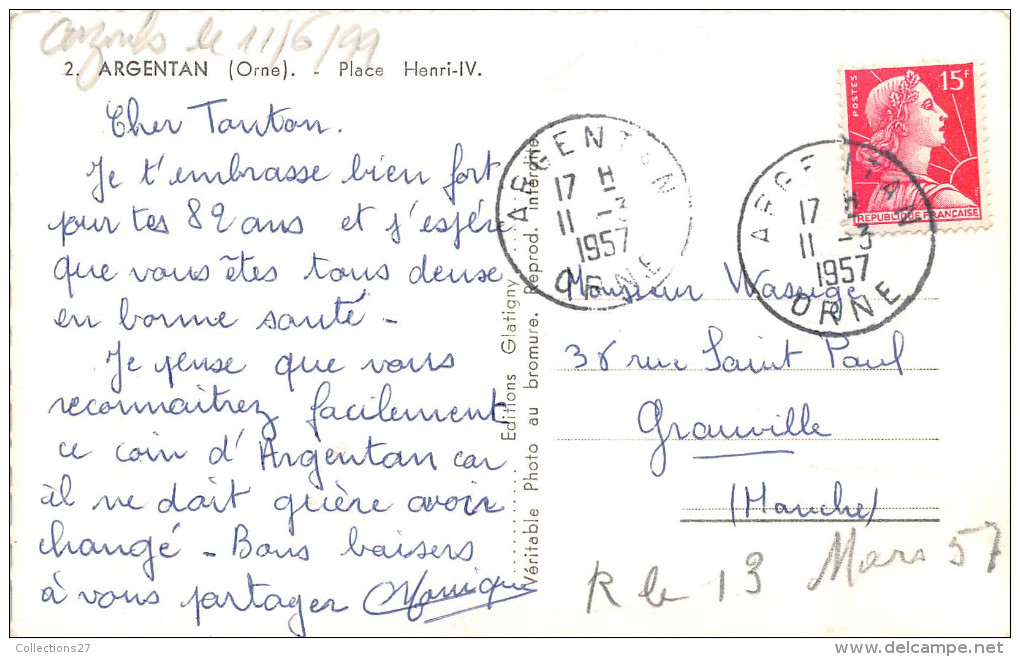 le 11/6/99
2. ARGENTAN (Orne). - Place Henri-IV.
Cher Tonton.
Je t'embrasse bien fort
pour tes 82 ans et j'espère
que vous êtes tous deux
en bonne santé -
Je pense que vous
reconnaîtrez facilement
ce coin d'Argentan car
il ne doit guière avoir
changé - Bons baisers
à vous partager Monique
Editions Glatigny
Véritable Photo au bromure. Reprod. interdite
ARGENTAN
17 H
11 -3
1957
ORNE
ARGENTAN
17 H
11 -3
1957
ORNE
POSTES
15F
REPUBLIQUE FRANÇAISE
Monsieur Wasuge
36 rue Saint Paul
Granville
(Manche)
R le 13 Mars 57
Collections27